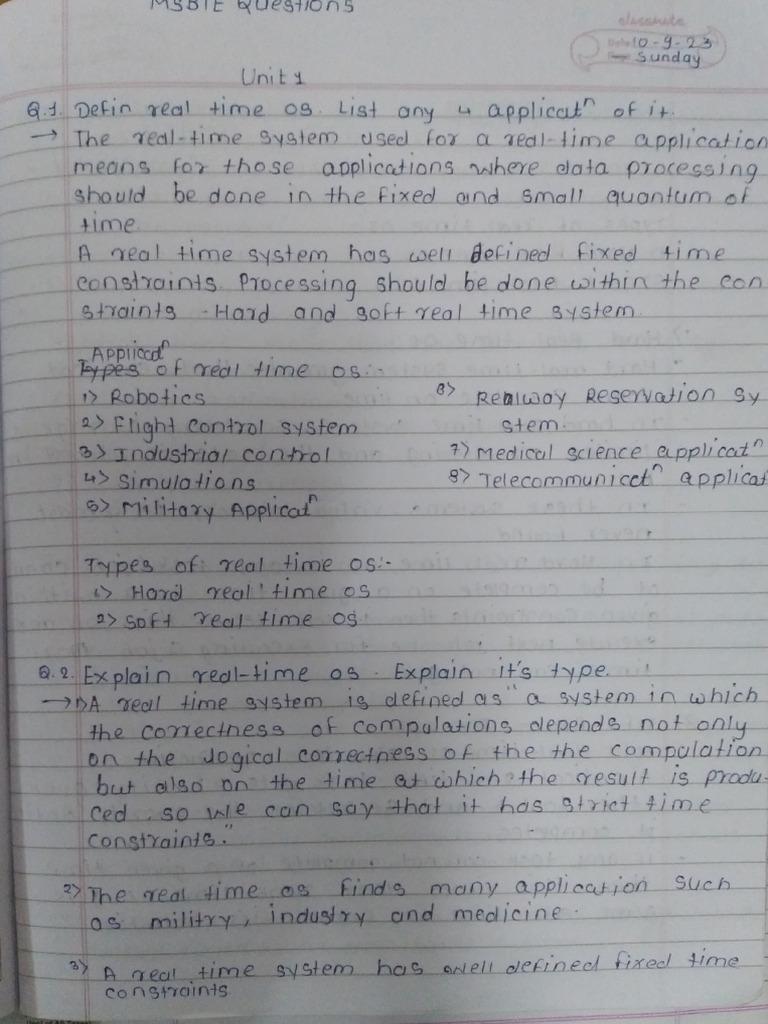 MSBTE Questions
classmate
Date 10-9-23
Sunday
Unit 1
Q.1. Defin real time os. List any 4 applicatn of it.
→ The real-time system used for a real-time application
means for those applications where data processing
should be done in the fixed and small quantum of
time.
A real time system has well defined fixed time
constraints. Processing should be done within the con
straints - Hard and soft real time system.
Applicatn
Types of real time os:-
1> Robotics
2> Flight control system
3> Industrial control
4> Simulations
5> Military Applicatn
6> Realway Reservation sy
stem.
7> Medical science applicatn
8> Telecommunicctn applicat
Types of real time os:-
1> Hard real time os
2> soft real time os
Q.2. Explain real-time os. Explain it's type.
→ 1> A real time system is defined as " a system in which
the correctness of compulations depends not only
on the logical correctness of the the compulation
but also on the time at which the result is produ-
ced. so we can say that it has strict time
constraints."
2> The real time os finds many application such
as militry, industry and medicine.
3> A real time system has well defined fixed time
constraints